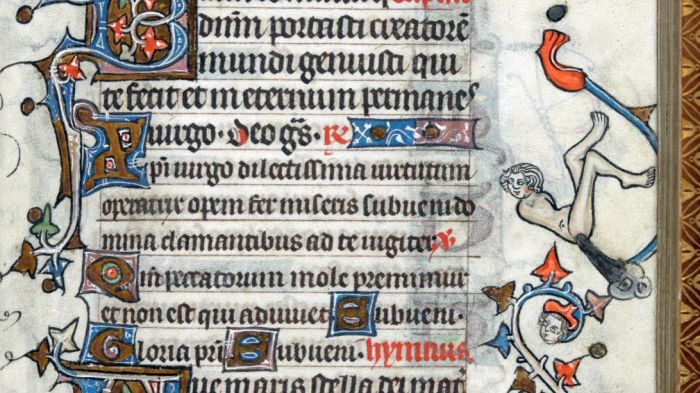 dn̄m portasti creatorē
mundi genuisti qui
te fecit et in eternum permanes
uirgo. Deo gs̄.
uirgo dilectissima uirtutum
operatur opem fer miseris subueni do
mina clamantibus ad te iugiter
Qm̄ peccatorum mole premimur
et non est qui adiuuet Subueni.
Gloria pr̄i Subueni. hympnus.
Aue maris stella dei mat